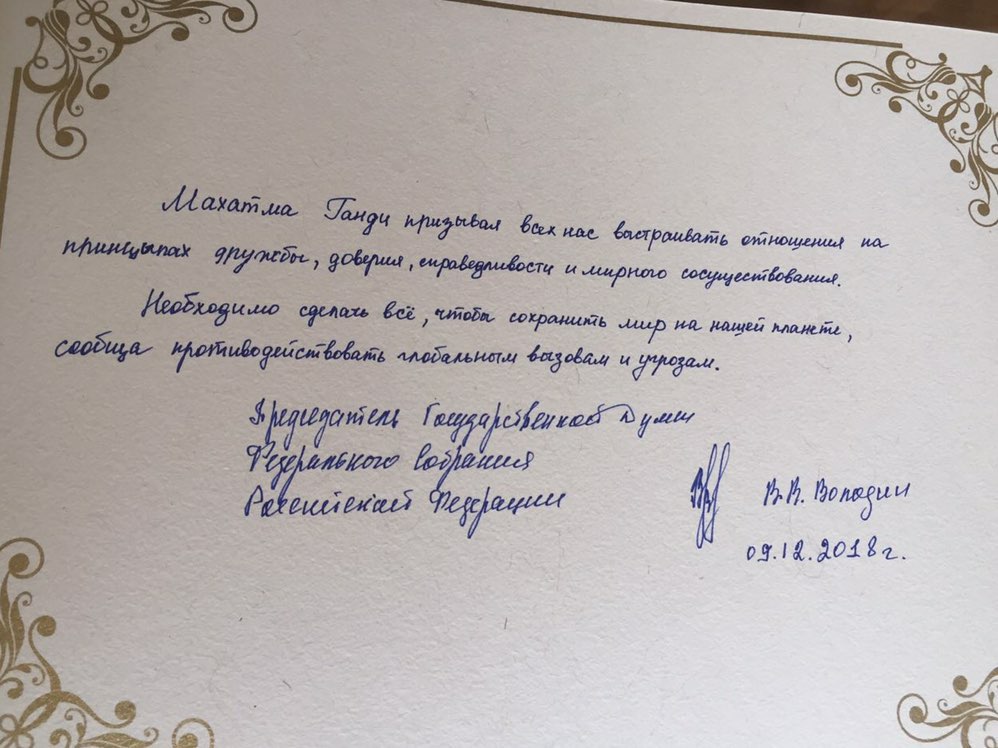 Махатма Ганди призывал всех нас выстраивать отношения на
принцыпах дружбы, доверия, справедливости и мирного сосуществования.
Необходимо сделать всё, чтобы сохранить мир на нашей планете,
сообща противодействовать глобальным вызовам и угрозам.
Председатель Государственной Думы
Федерального Собрания
Российской Федерации
В.В. Володин
09.12.2018г.